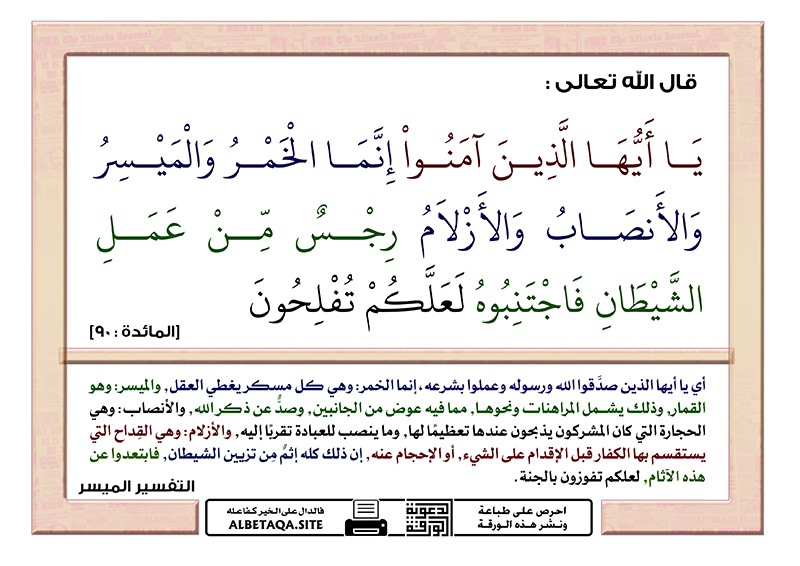 قال الله تعالى :
يَـا أَيُّهَـا الَّذِيـنَ آمَنُـواْ إِنَّمَـا الْخَمْـرُ وَالْمَيْـسِرُ
وَالأَنصَـابُ وَالأَزْلاَمُ رِجْـسٌ مِّـنْ عَمَـلِ
الشَّيْطَانِ فَاجْتَنِبُوهُ لَعَلَّكُمْ تُفْلِحُونَ
[المائدة : ٩٠]
أي يا أيها الذين صدَّقوا الله ورسوله وعملوا بشرعه ، إنما الخمر: وهي كل مسكر يغطي العقل, والميسر: وهو
القمار, وذلك يشمل المراهنات ونحوها, مما فيه عوض من الجانبين, وصدٌّ عن ذكر الله, والأنصاب: وهي
الحجارة التي كان المشركون يذبحون عندها تعظيمًا لها, وما ينصب للعبادة تقربًا إليه, والأزلام: وهي القِداح التي
يستقسم بها الكفار قبل الإقدام على الشيء, أو الإحجام عنه, إن ذلك كله إثمٌ مِن تزيين الشيطان, فابتعدوا عن
هذه الآثام, لعلكم تفوزون بالجنة.
التفسير الميسر
احرص على طباعة
ونشر هذه الورقة
الدعوية
الورقة
فالدال على الخير كفاعله
ALBETAQA.SITE